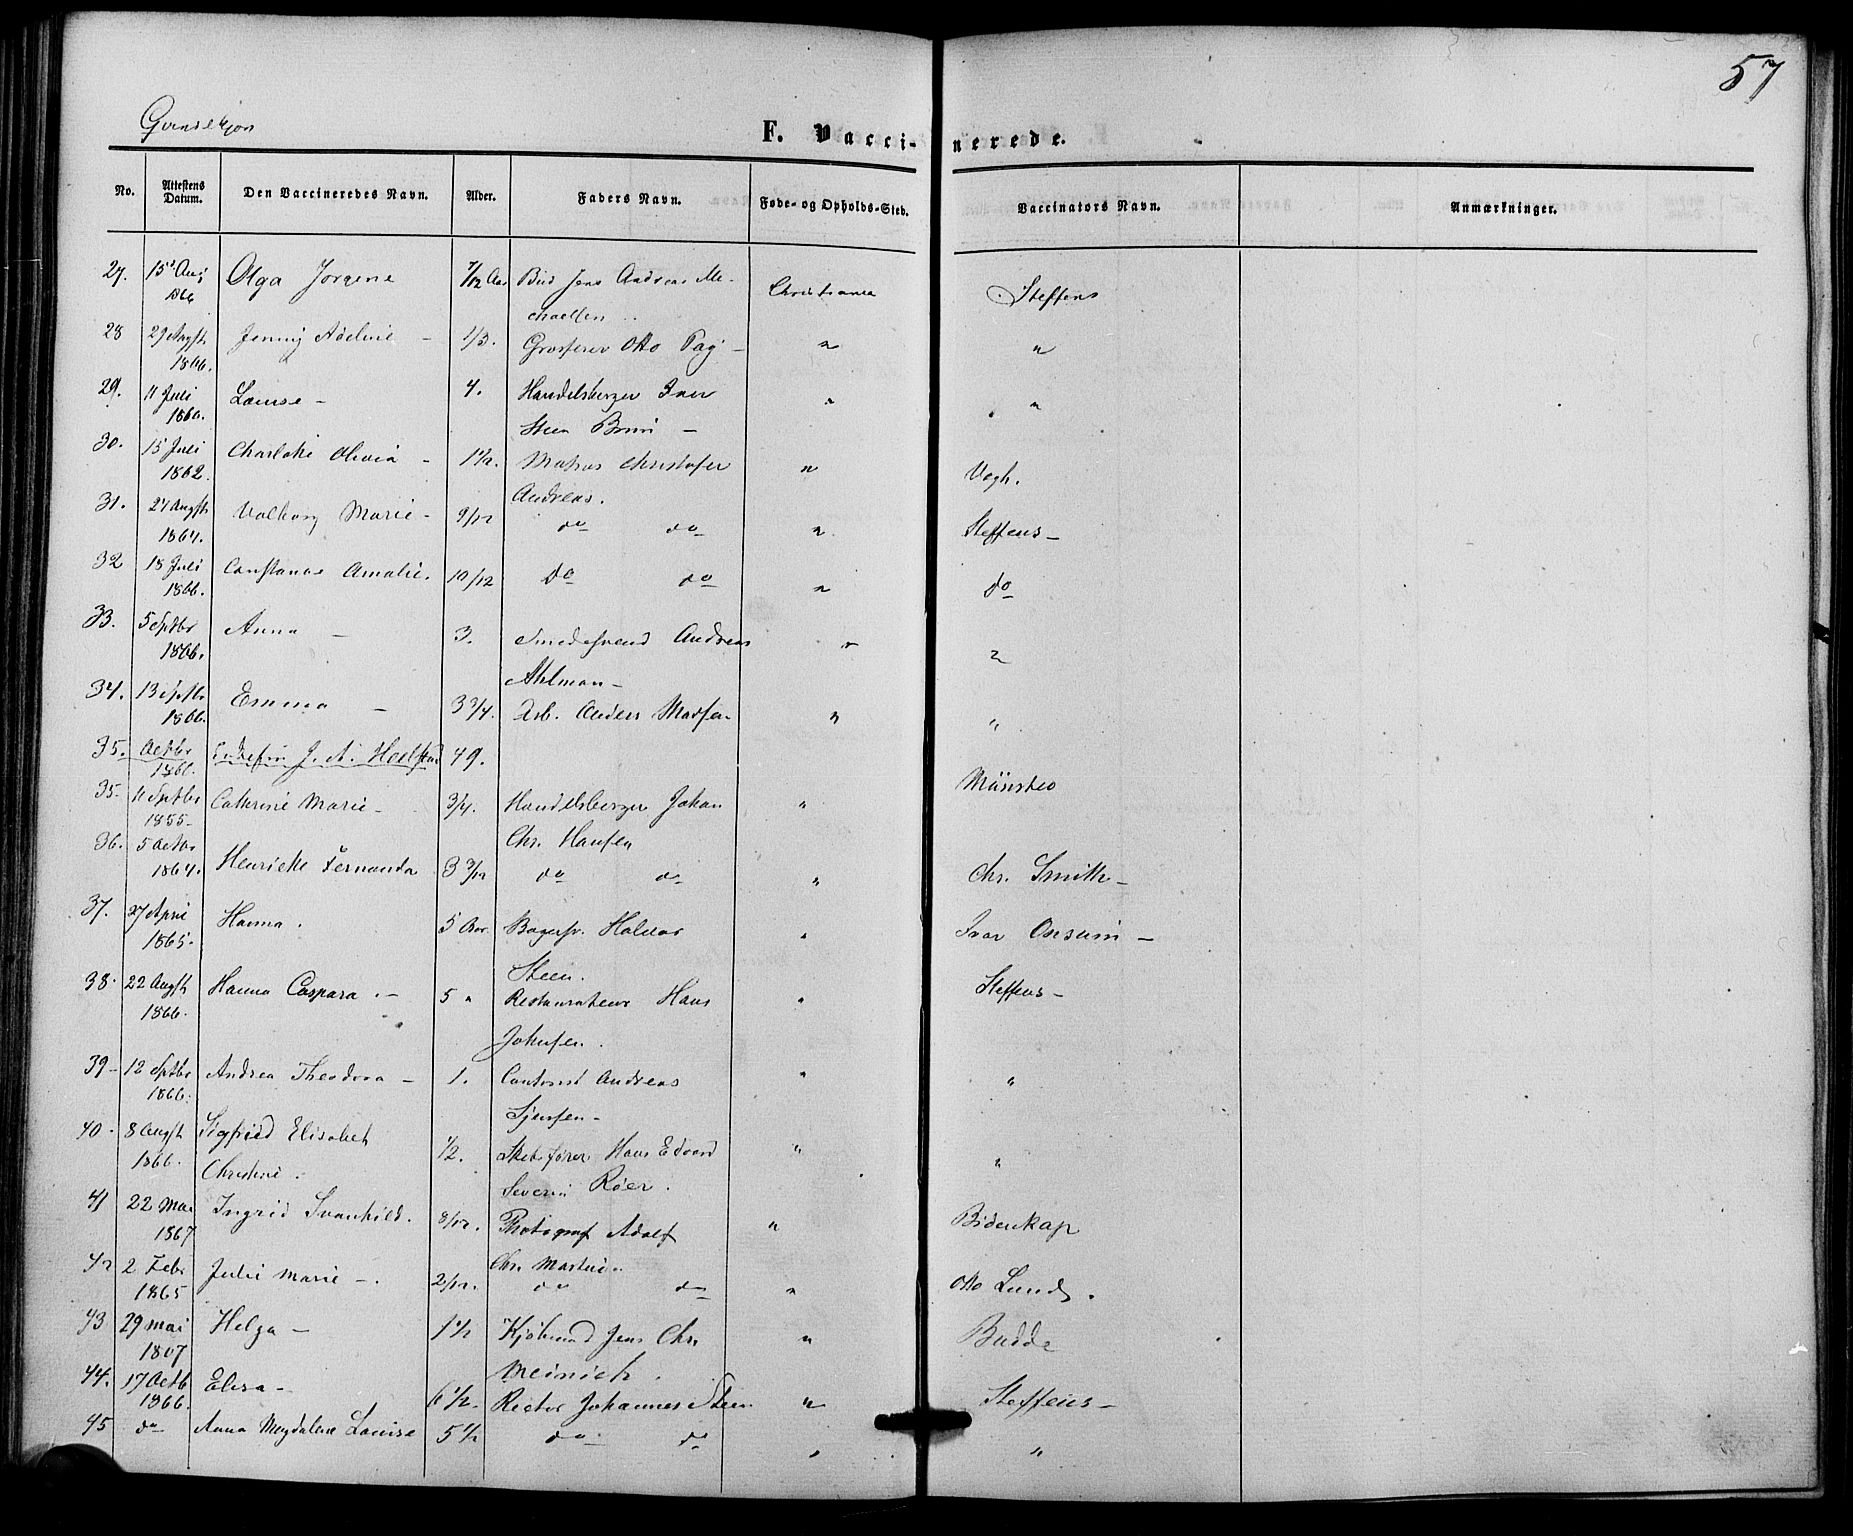 57
Qvindekjøn
F. Vaccinerede.
No. Attestens Datum. Den Vaccineredes Navn. Alder. Faders Navn. Føde- og Opholds-Sted. Vaccinators Navn. Anmærkninger.
27. 15 Aug Olga Jørgine 7/12 Aar Bud Jens Andreas Mi- Christiania Steffens
chaelsen
28 29 Augst 1866. Jenny Adeline - 1/3. Grosserer Otto " "
29. 11 Juli 1860. Louise - 4. Handelsborger Iver " "
Steen Bruun -
30. 15 Juli 1862. Charlotte Olivia - 1 1/2. Matros Christofer " Vogh.
Andreas.
31. 27 Augst 1864. Valborg Marie - 9/12 do do " Steffens -
32 18 Juli 1866. Constance Amalie. 10/12 do do " do
33. 5 Septbr 1866. Anna - 3. Smedesvend Andreas " "
Ahlman -
34. 13 Septbr 1866. Emma - 3 3/4. Arb. Anders Madsen " "
35. Octbr 1860. J. A. 49.
35. 11 Septbr 1855 - Cathrine Marie - 3/4. Handelsborger Johan " Münster
Chr. Hansen
36. 5 Octbr 1864. Henriette Fernanda 3 3/12 do do " Chr. Smith -
37. 27 April 1865. Hanna. 5 Aar. Bagersv. Halvor " Ivar Onsum -
Steen.
38. 22 Augst 1866. Hanna Caspara. - 5 " Restaurateur Hans " Steffens -
Johnsen.
39 - 12 Septbr 1866. Andrea Theodora - 1. Contorist Andreas " "
40. 8 Augst 1866. Sigfried Elisabet 1/2. Skibsfører Hans Edvard " "
Christine. Severin Røer.
41 22 Mai 1867 Ingrid Svanhild. 8/12. Photograf Adolf " Bidenkap
Chr. Martin
42 2 Febr 1865 Julie Marie -. 2/12. do do " Otto Lund.
43 29 Mai 1867 Helga - 1 1/2 Kjøbmand Jens Chr. " Budde
Meinich.
44. 17 Octb 1866. Elisa - 6 1/2. Rector Johannes Steen " Steffens -
45 do Anna Magdalene Louise 5 1/2 do do " "